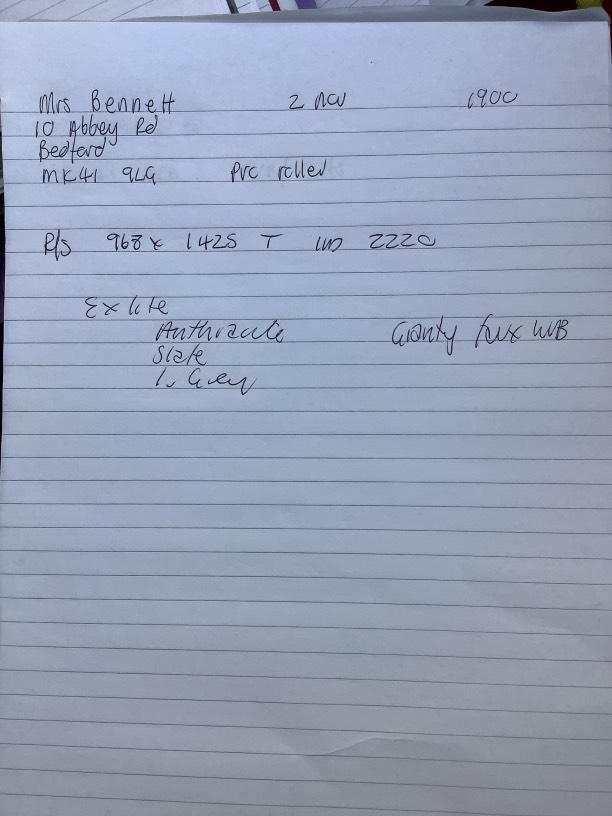 Mrs Bennett 2 nov 1900
10 Abbey Rd
Bedford
MK41 9LG PVC roller
R/S 968 x 1425 T 2220
Exlite
Anthracite
Slate
Grey